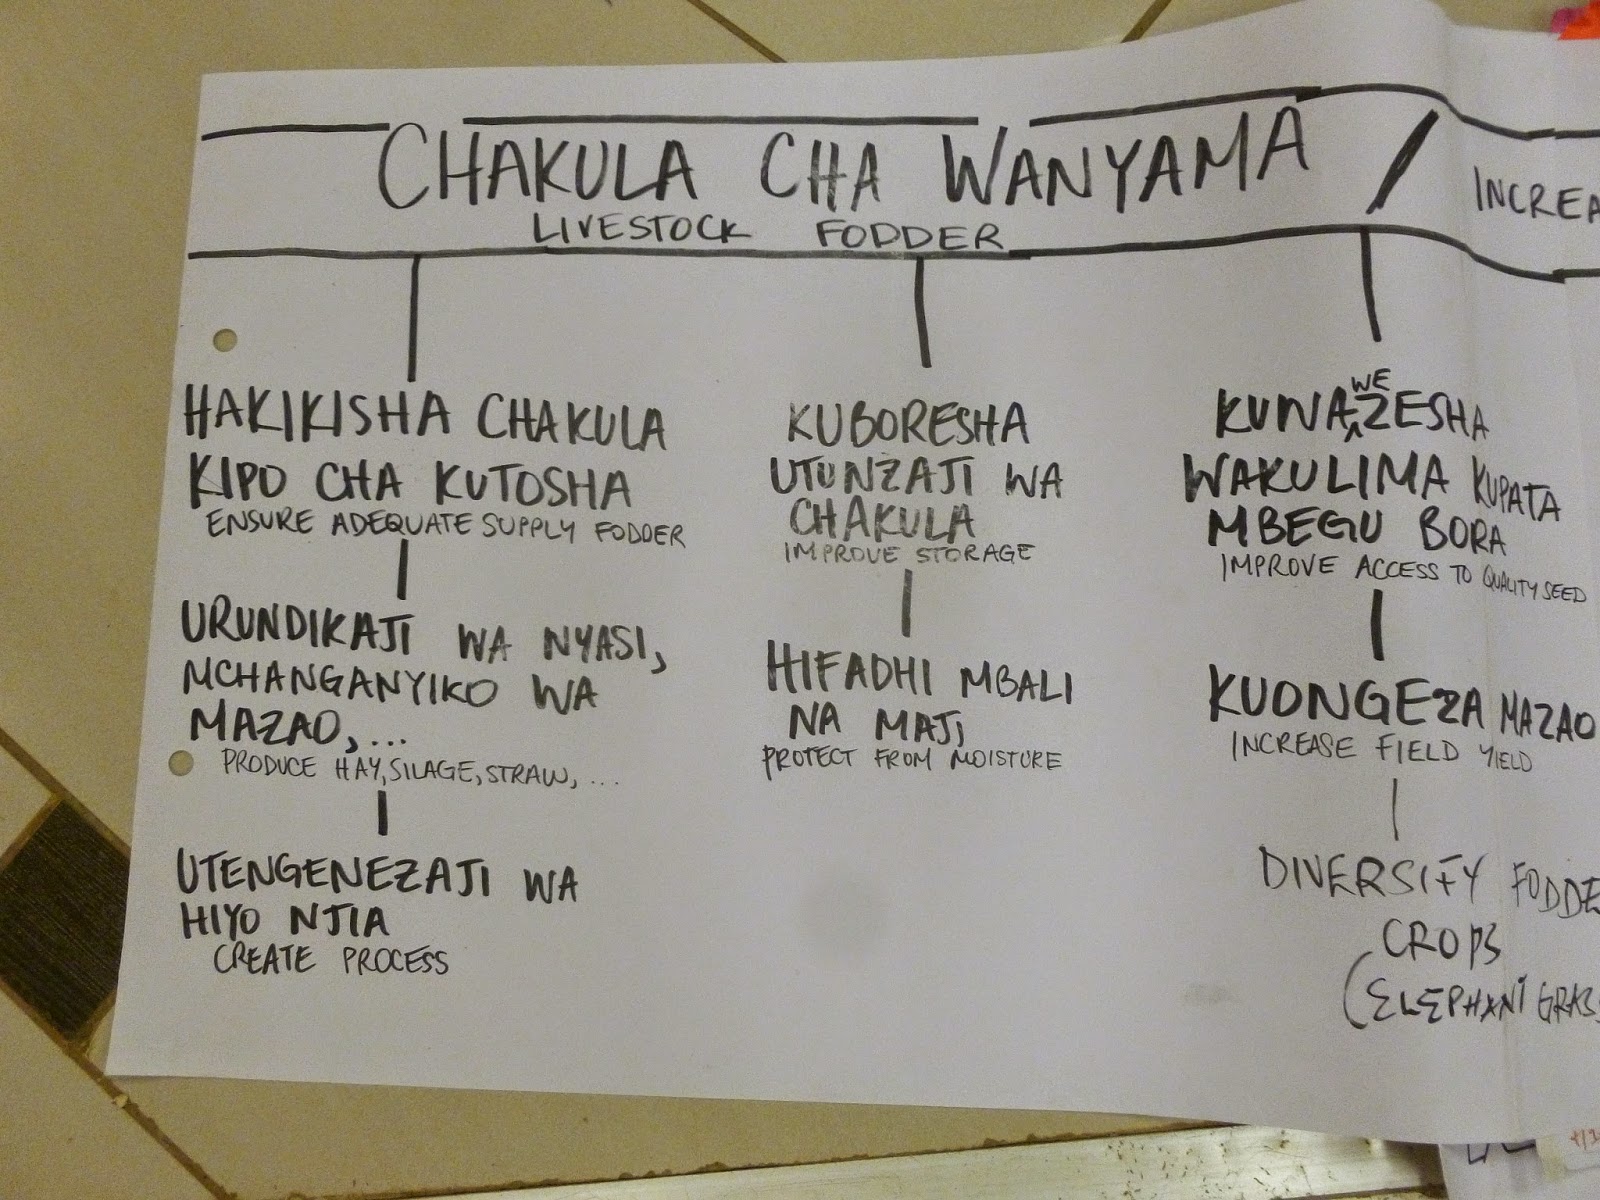 CHAKULA CHA WANYAMA /
LIVESTOCK FODDER
HAKIKISHA CHAKULA
KIPO CHA KUTOSHA
ENSURE ADEQUATE SUPPLY FODDER
URUNDIKAJI WA NYASI,
MCHANGANYIKO WA
MAZAO,...
PRODUCE HAY, SILAGE, STRAW, ...
UTENGENEZAJI WA
HIYO NJIA
CREATE PROCESS
KUBORESHA
UTUNZAJI WA
CHAKULA
IMPROVE STORAGE
HIFADHI MBALI
NA MAJI
PROTECT FROM MOISTURE
KUWAWEZESHA
WAKULIMA KUPATA
MBEGU BORA
IMPROVE ACCESS TO QUALITY SEED
KUONGEZA MAZAO
INCREASE FIELD YIELD
DIVERSIFY FODDE
CROPS
(ELEPHANT GRASS